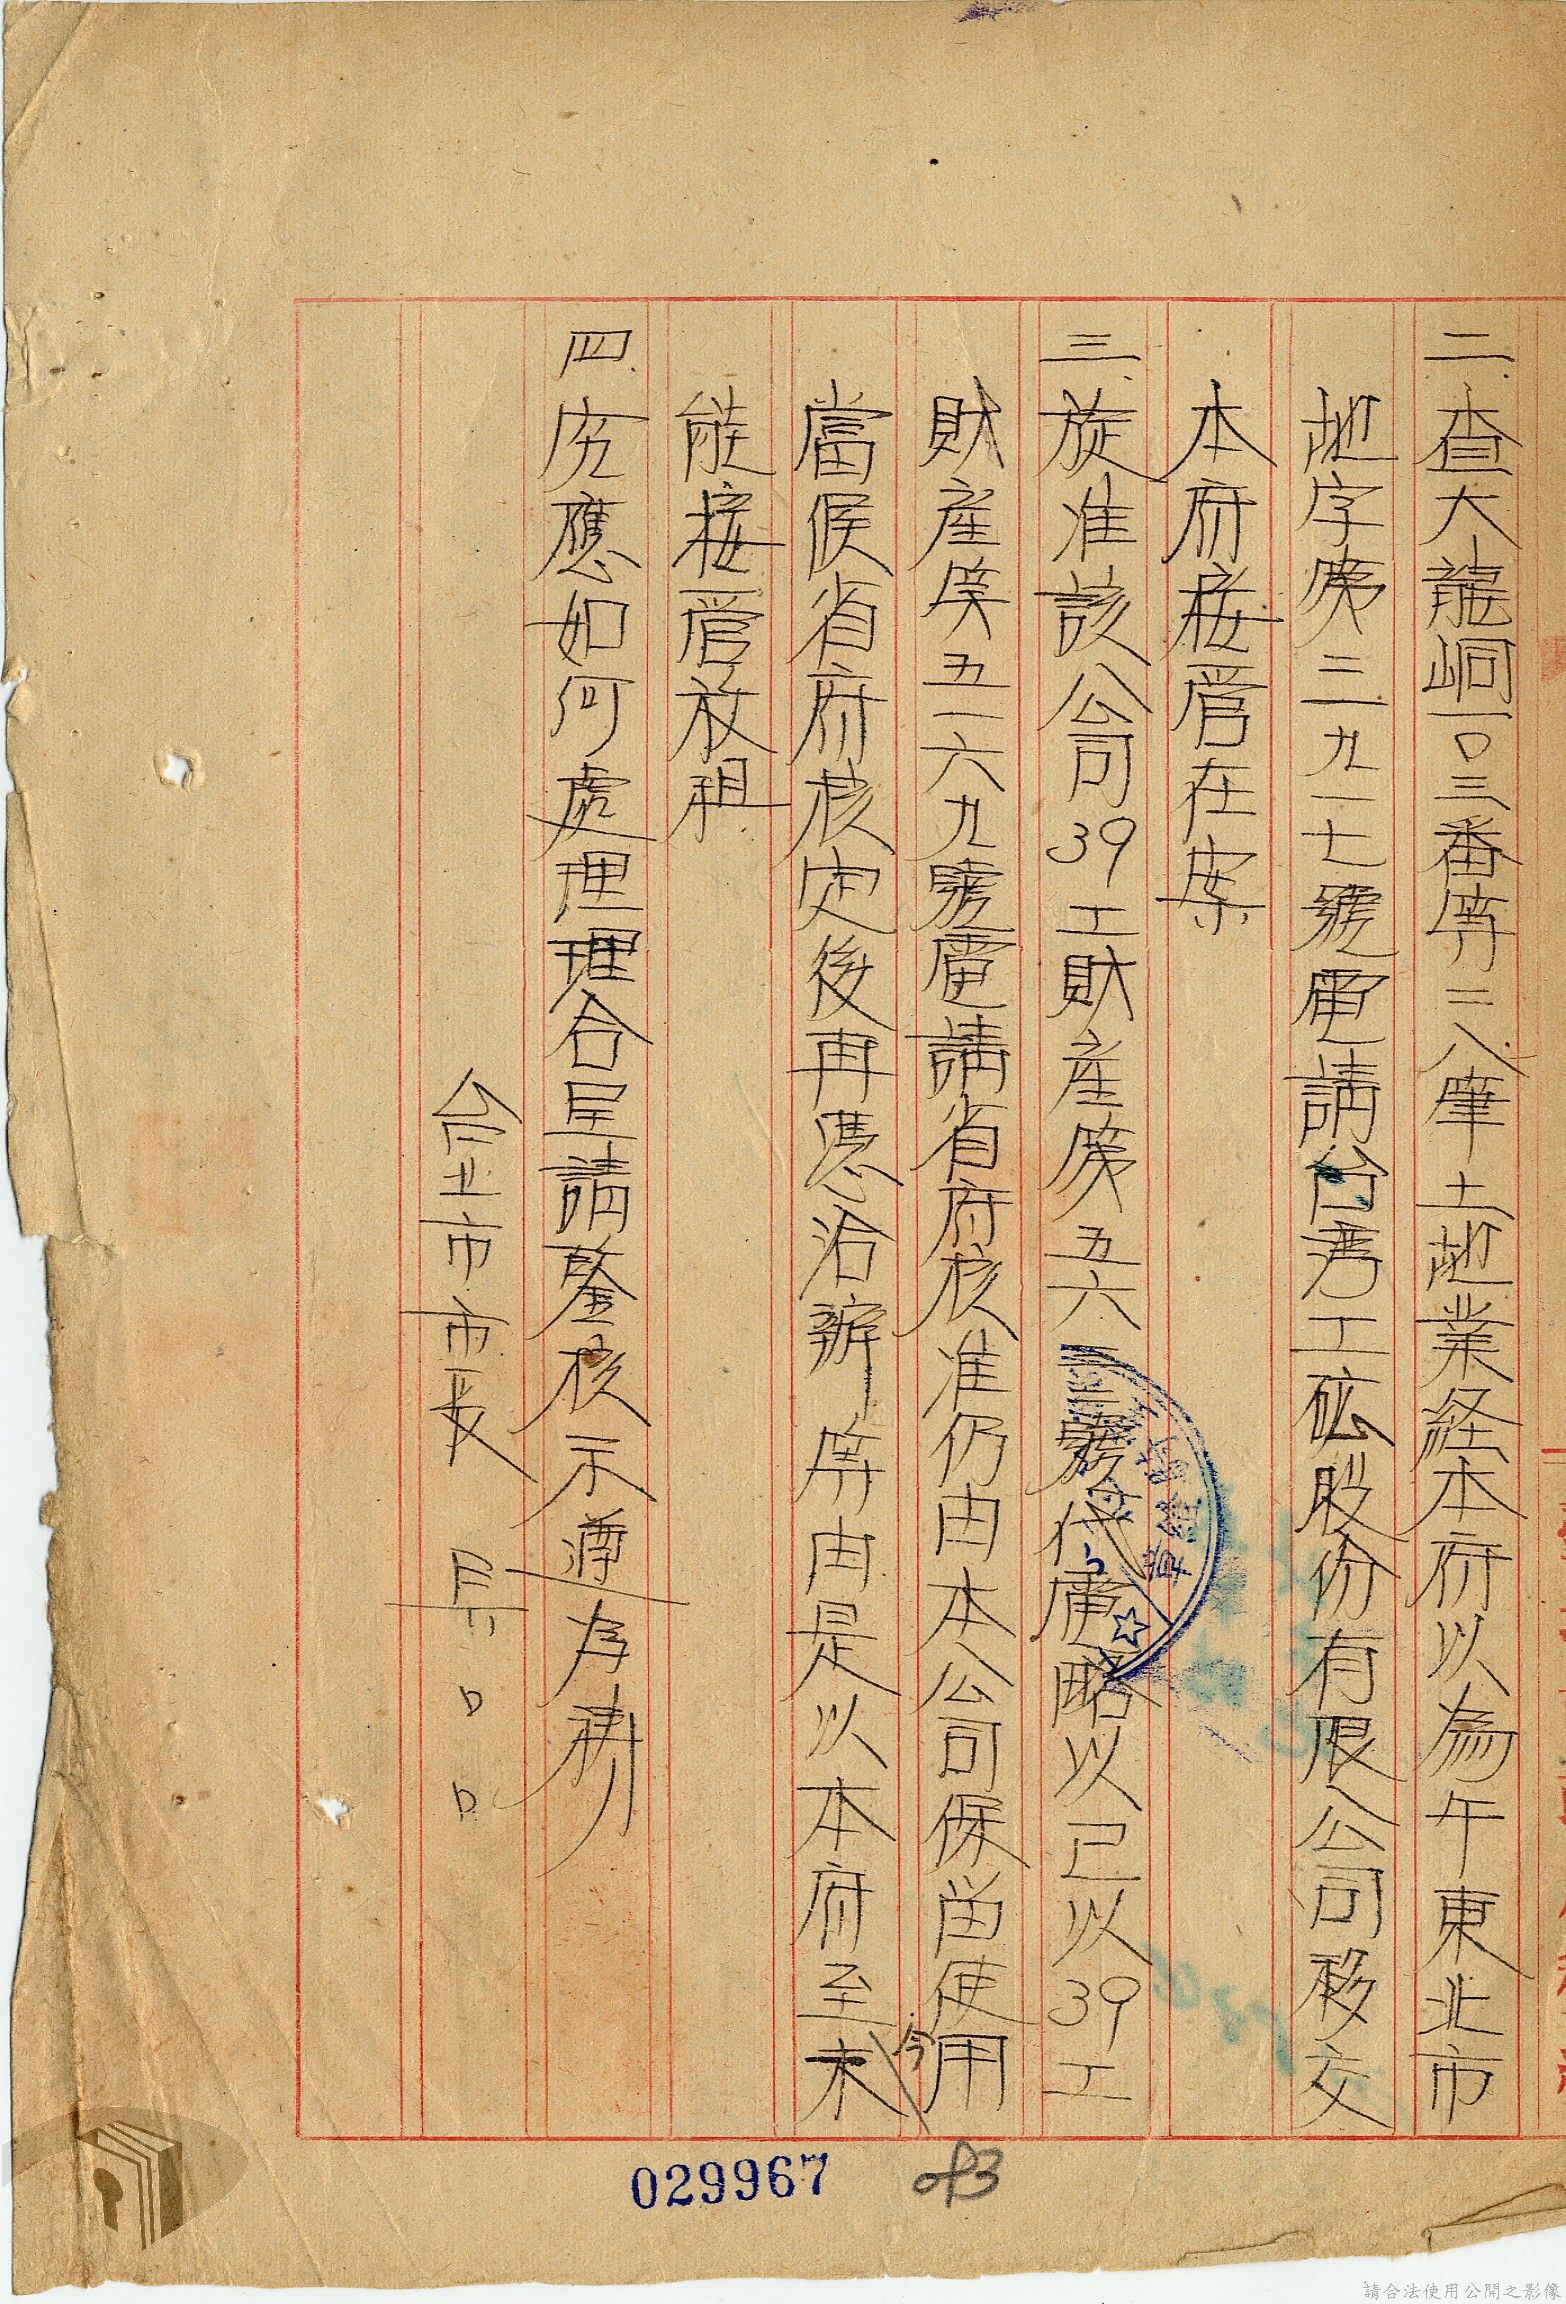 二、查大龍峒一〇三番等二八筆土地業経本府以為午東北市
地字第三九一七號電請台湾工砿股份有限公司移交
本府接管在案
三、旋准該公司39工財産第五六三三號代電略以已以39工
財産第五一六九號電請省府核准仍由本公司保留使用
當俟省府核定後再憑洽辦等由是以本府至今未
能接管放租
四、究應如何處理理合呈請鑒核示遵為禱
台北市市長 吳〇〇
029967
章
請合法使用公開之影像